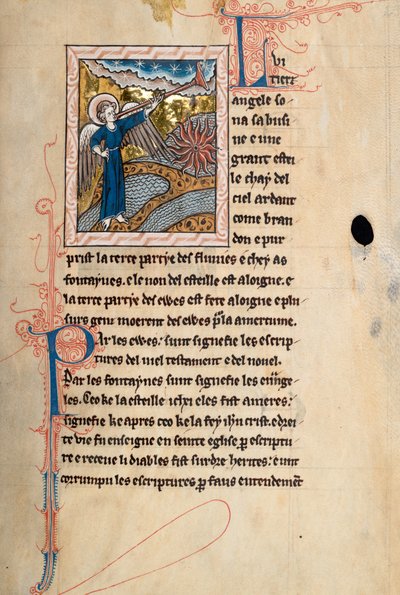 Li
tierz
angele so
na sa busi
ne e une
grant estei
le chaÿ del
ciel ardant
come bran
don e pur
prist la terce partye des flumes e chey as
fontaynes. e le non del esteille est aloigne. e
la terce partye des ewes est fete aloigne e plu
surs genz moerent des ewes pur la amertume.
Par les ewes: sunt signefie les escrip
tures del viel testament e del novel.
Par les fontaynes sunt signefie les ewnge
les. Ceo ke la esteille ichi eles fist ameres:
signefie ke apres ceo ke la fey ihu crist. e drei
te vie fu enseigne en seinte eglise per escriptu
re e receue li diables fist surdre herites: e unt
corrumpu les escriptures per faus entendement